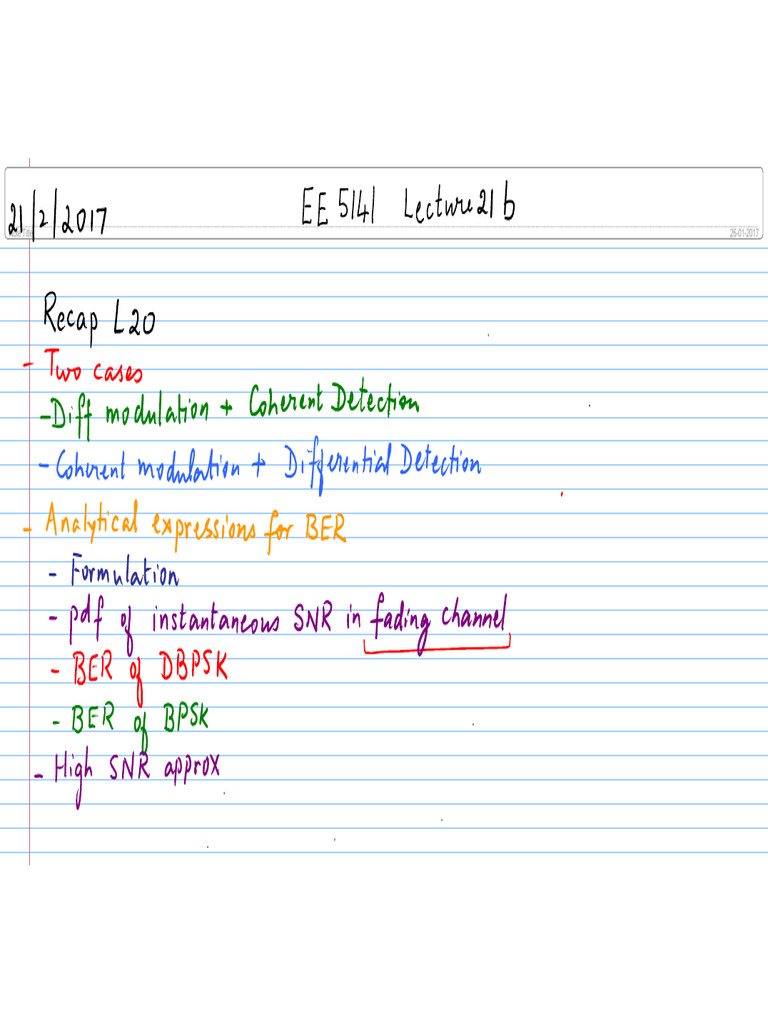 21/2/2017 EE 5141 Lecture 21 b
Note Title 26-01-2017
Recap L20
- Two cases
- Diff modulation + Coherent Detection
- Coherent modulation + Differential Detection
- Analytical expressions for BER
- Formulation
- pdf of instantaneous SNR in fading channel
- BER of DBPSK
- BER of BPSK
- High SNR approx